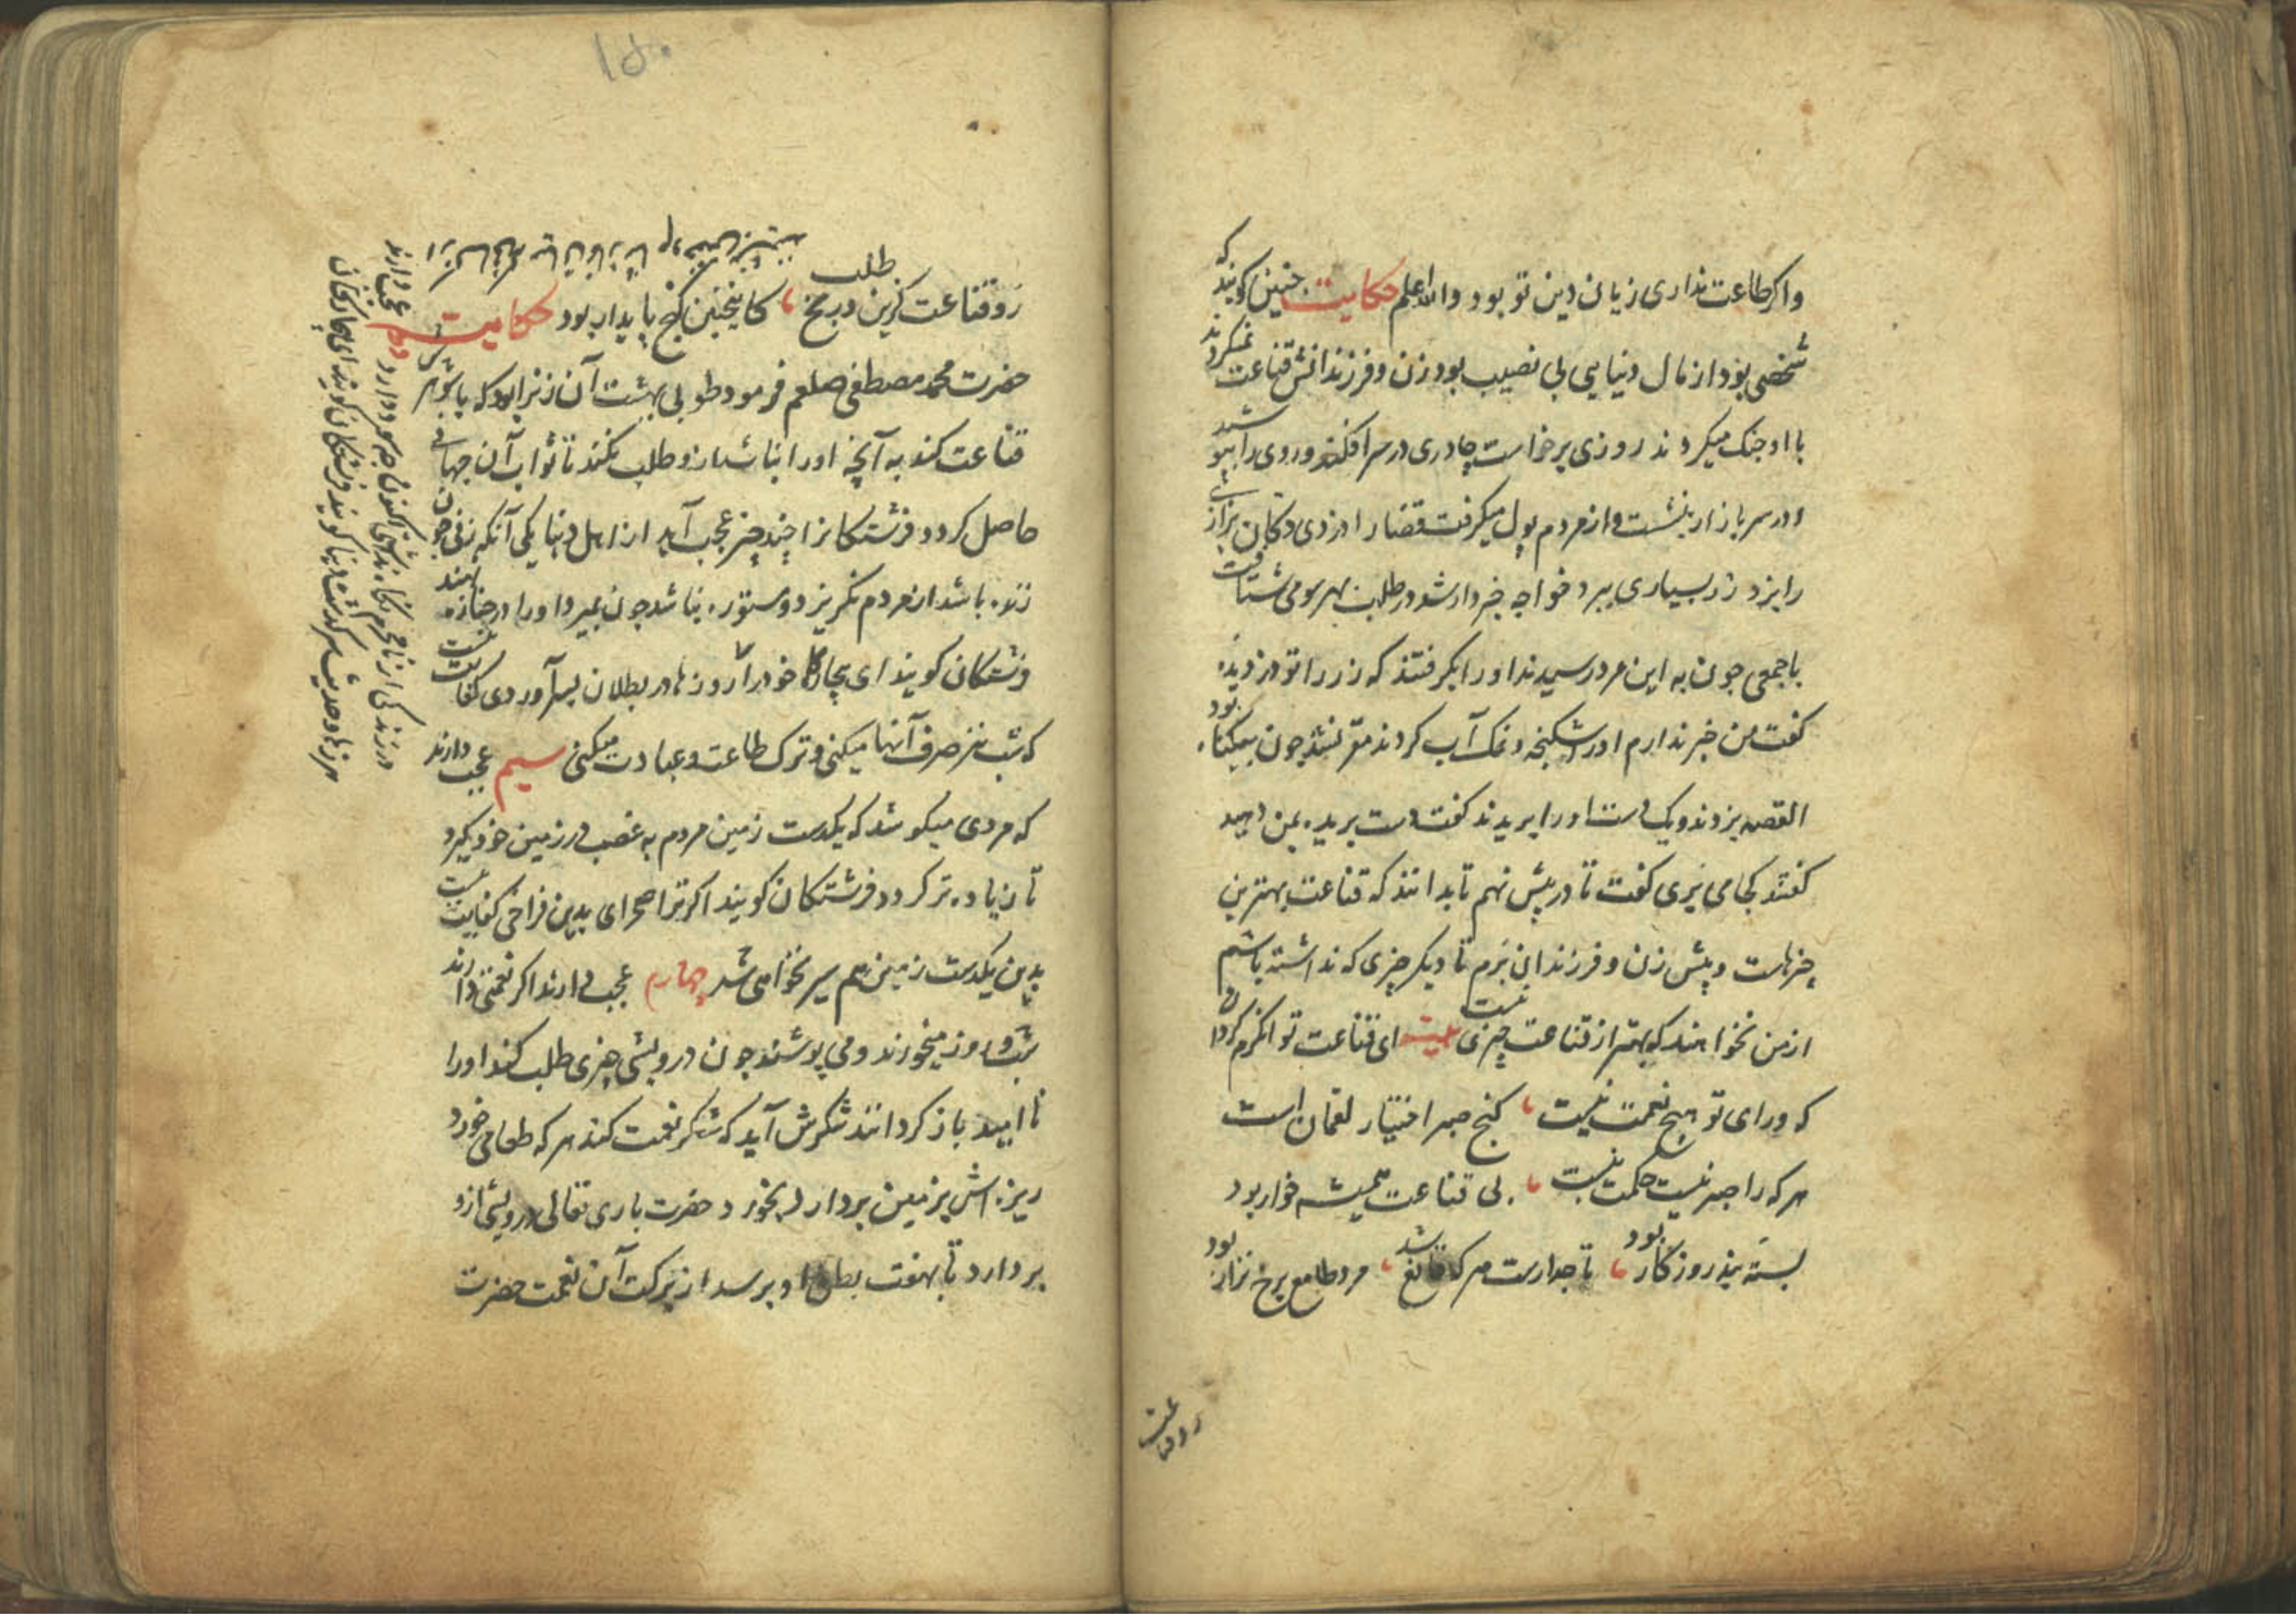 واکر طاعت نداری زیان دین تو بود والله اعلم حکایت جنین کویند که
شخصی بود از مال دنیایی بی نصیب بود زن و فرزندانش قناعت نمیکردند
با او جنک میکردند روزی برخاست چادری در سر افکند و روی را بپوشید
و در سر بازار بنشست و از مردم پول میکرفت قضا را دزدی دکان بزازی
را بزد زر بسیاری ببرد خواجه خبردار شد در طلب بهر سو می شتافت
با جمعی جون به این مرد رسیدند او را بکرفتند که زر را تو دزدیده
کفت من خبر ندارم او را شکنجه و نمک آب کردند مقر نشد جون بیکناه بود
القصه بردند و یک دست او را بریدند کفت دست بریده بمن دهید
کفتند کجا می بری کفت تا در پیش نهم تا بدانند که قناعت بهترین
چیزهاست و پیش زن و فرزندان برم تا دیکر چیزی که نداشته باشم
از من نخواهند که بهتر از قناعت چیزی نیست بیت ای قناعت توانکرم کردان
که ورای تو هیچ نعمت نیست کنج صبر اختیار لقمان است
هر که را صبر نیست حکمت نیست بی قناعت همیشه خوار بود
بسته بند روزکار بود تاجدارست هر که قانع شد مرد طامع برخ نزار بود
رو قناعت
۱۵۰
رو قناعت کزین و بر مخ طلب کاینجنین کنج پایدار بود حکایت
حضرت محمد مصطفی صلعم فرمود طوبی بهشت آن زنرا بود که با شوهر
قناعت کند به آنچه او را نباشد ازو طلب نکند تا ثواب آن جهانی
حاصل کردد و فرشتکانرا چند چیز عجب آید از اهل دنیا یکی آنکه زنی جون
زنده باشد از مردم نکریزد و مستوره نباشد جون بمیرد او را در جنازه نهند
فرشتکان کویند ای بیچاره خود را روزها در بطلان بسر آوردی کفایت نیست
که شب نیز صرف آنها میکنی و ترک طاعت و عبادت میکنی سیم عجب دارند
که مردی میکوشد که یکدست زمین مردم به غصب در زمین خود کیرد
تا زیاده تر کردد فرشتکان کویند اکر ترا صحرای بدین فراخی کفایت نیست
بدین یکدست زمین هم سیر نخواهی شد چهارم عجب دارند اکر نعمتی دارند
شب و روز میخورند و می پوشند جون درویشی چیزی طلب کند او را
نا امید باز کردانند شکرش آید که شکر نعمت کند هر که طعامی خورد
ریزه اش بزمین بردارد بخورد حضرت باری تعالی درویشی ازو
بردارد تا بهفت بطن او برسد از برکت آن نعمت حضرت
دوم عجب دارند